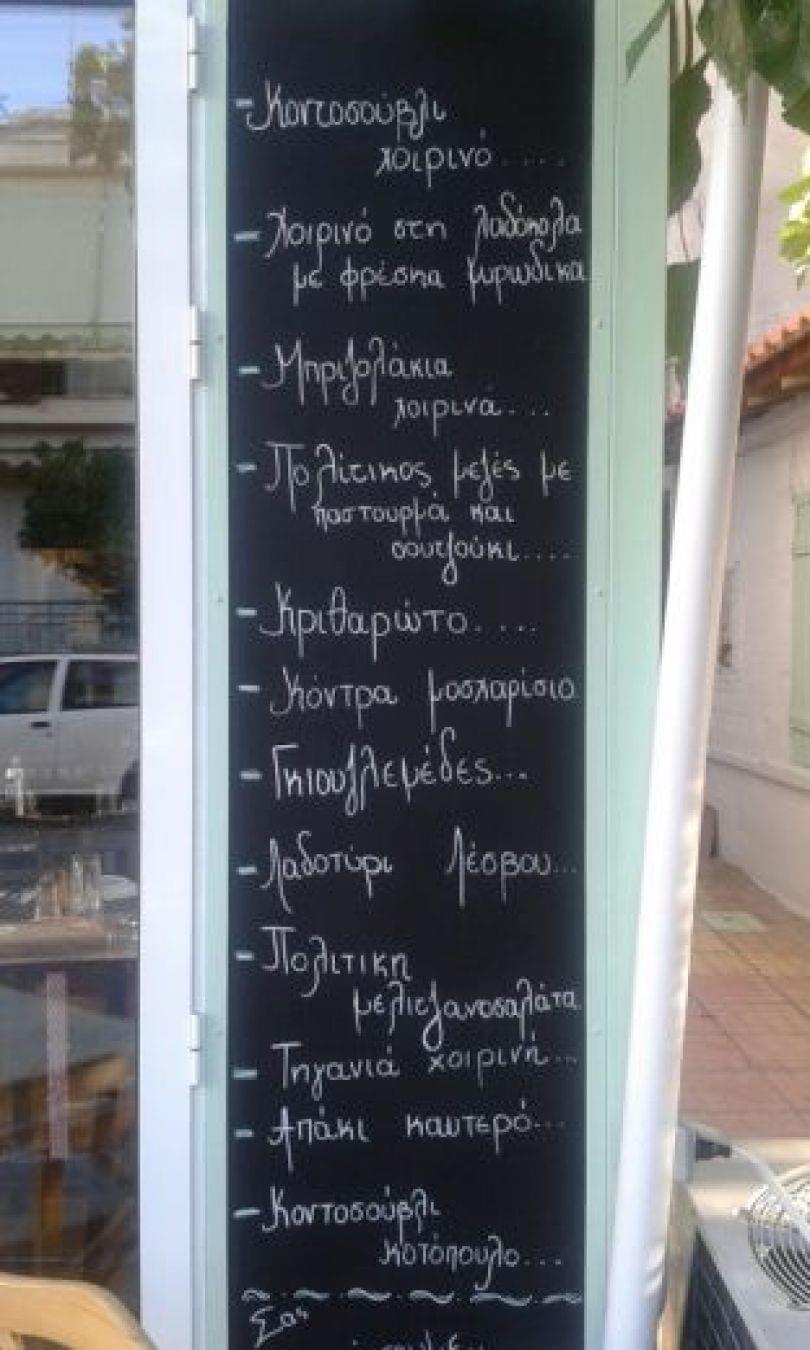 - Κοντοσούβλι
χοιρινό....
- Χοιρινό στη λαδόκολα
με φρέσκα μυρωδικα
- Μπριζολάκια
χοιρινά...
- Πολίτικος μεζές με
παστουρμά και
σουτζούκι....
- Κριθαρώτο....
- Κόντρα μοσχαρίσιο
- Γκιουζλεμέδες...
- Λαδοτύρι Λέσβου...
- Πολιτικη
μελιτζανοσαλάτα
- Τηγανιά χοιρινή...
- Απάκι καυτερό...
- Κοντοσούβλι
κοτόπουλο...
Σας